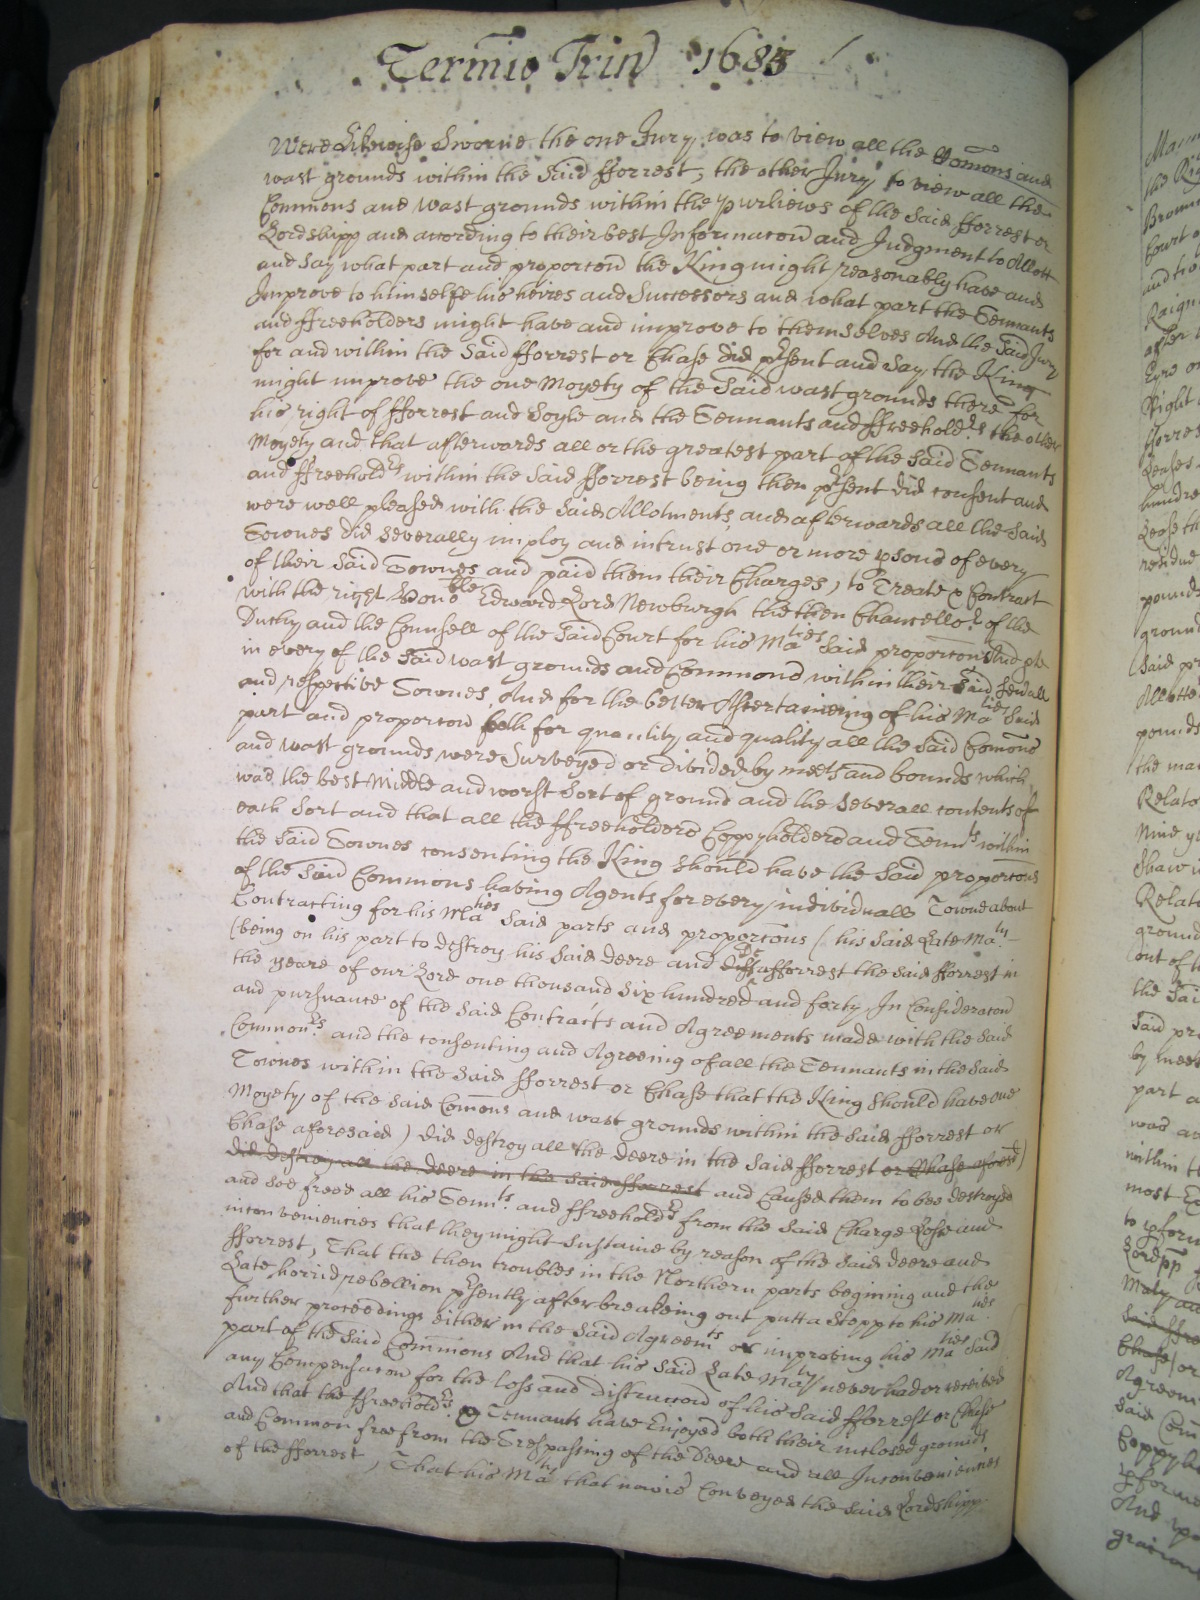 Termio Trin 1685
Were Likewise Sworne the one Jury was to view all the Comons and
wast grounds within the Said fforrest, the other Jury to view all the
Commons and wast grounds within the purliews of the Said fforrest or
Lordshipp and according to their best Informacon and Judgment to Allott
and Say what part and proporcon the King might reasonably have and
Improve to himselfe his heires and Successors and what part the Tennants
and ffreeholders might have and improve to themselves And the Said Jury
for and within the Said fforrest or Chase did psent and Say the King
might improve the one Moyety of the Said wast grounds there for
his right of fforrest and Soyle and the Tennants and ffreehold.rs the other
Moyety and that afterwards all or the greatest part of the Said Tennants
and ffreehold.rs within the Said fforrest being then psent did consent and
were well pleased with the Said Allotments and afterwards all the Said
Townes did Severally imploy and intrust one or more psons of every
of their Said Townes and paid them their Charges, to Treate & Contract
with the right Honoble Edward Lord Newburgh the then Chancello.r of the
Duchy and the Counsell of the Said Court for his Maties Said proporcons And
in every of the Said wast grounds and Commons within their Said Sevall
and respective Townes, And for the better Ascertaineing of his Maties Said
part and proporcon both for quantity and quality all the Said Comons
and wast grounds were Surveyed or divided by meets and bounds which
was the best Middle and worst Sort of ground and the Severall contents of
each Sort and that all the ffreeholders Coppyholders and Tennts within
the Said Townes consenting the King Should have the Said proporcons
of the Said Commons having Agents for every individuall Towne about
Contracting for his Maties Said parts and proporcons (his Said Late Maty
(being on his part to destroy his Said Deere and disafforrest the Said fforrest in
the yeare of our Lord one thousand Six hundred and forty, In Consideracon
and pursuance of the Said Contracts and Agreements made with the Said
Common.rs and the consenting and Agreeing of all the Tennants in the Said
Townes within the Said fforrest or Chase that the King Should have one
Moyety of the Said Comons and wast grounds within the Said fforrest or
Chase aforesaid) did destroy all the Deere in the Said fforrest or Chase aforesd)
did destroy all the Deere in the Said fforrest and Caused them to bee destroyed
and Soe freed all his Tennts. and ffreehold.rs from the Said Charge Losse and
inconveniencies that they might Sustaine by reason of the Said Deere and
fforrest, That the then troubles in the Northern parts begining and the
Late horrid rebellion psently after breakeing out putt a Stopp to his Maties
further proceedings either in the Said Agreemts or improving his Maties Said
part of the Said Commons And that his Said Late Maty never had or received
any Compensacon for the loss and distruccon of his Said fforrest or Chase
And that the ffreehold.rs & Tennants have Enjoyed both their inclosed grounds
and Common free from the Trespassing of the Deere and all Inconveniencies
of the fforrest, That his Maty that now is Conveyed the Said Lordshipp